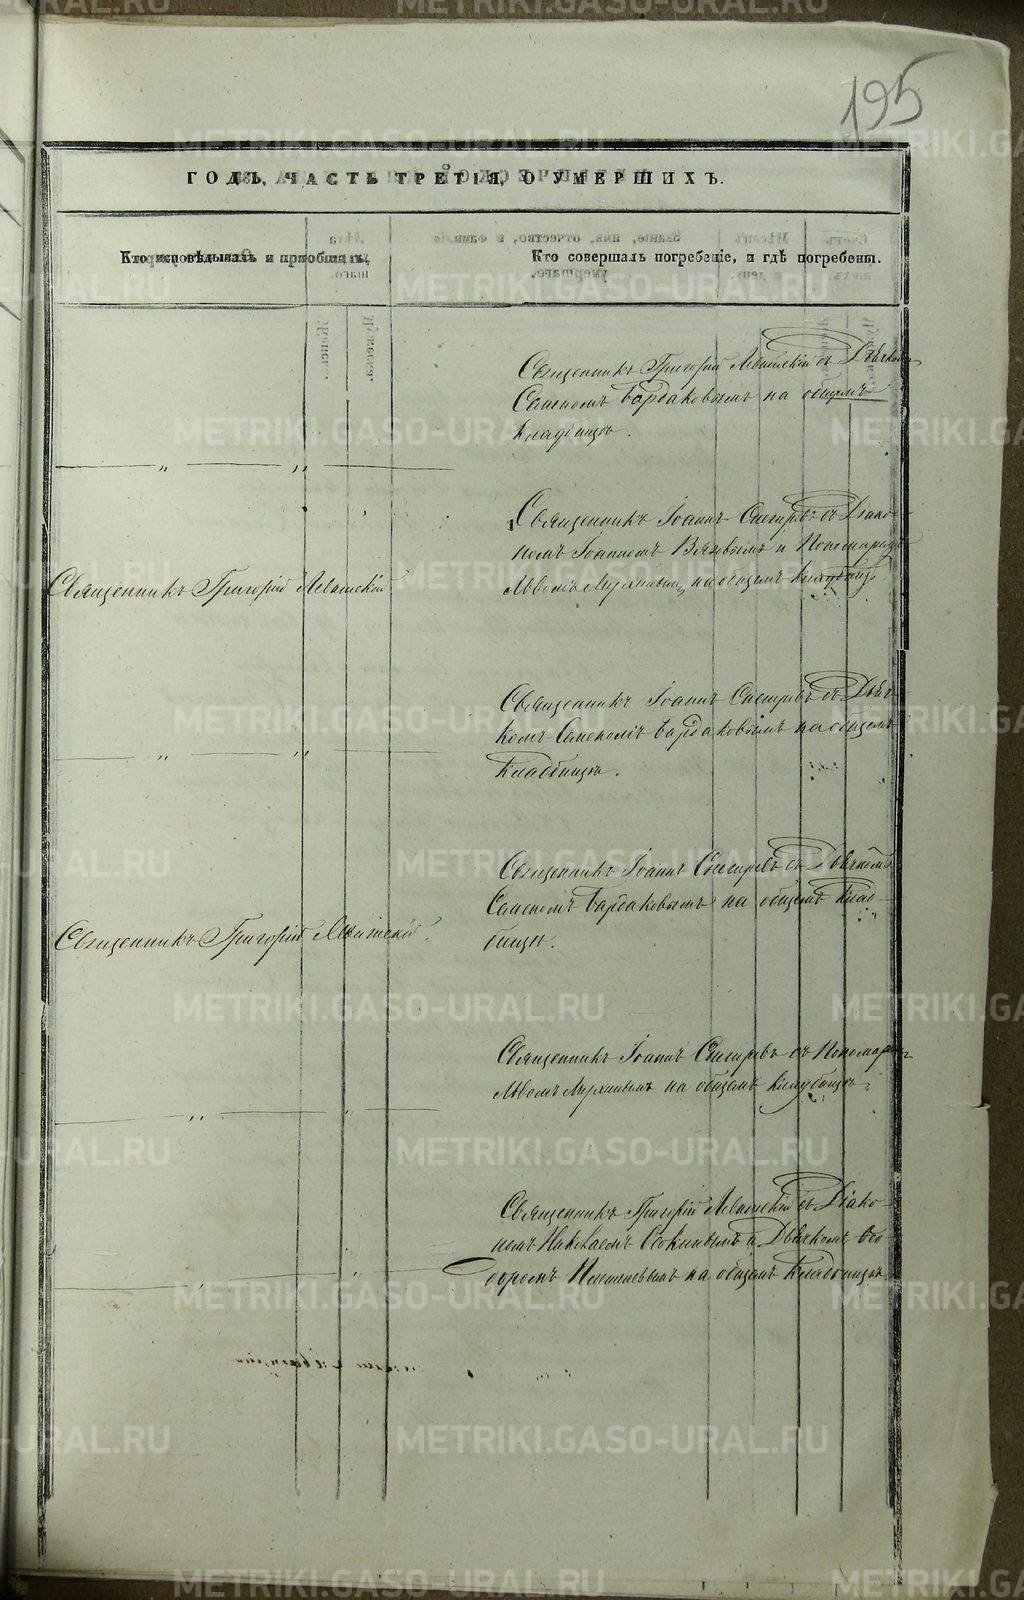 195
ГОДЪ, ЧАСТЬ ТРЕТІЯ, О УМЕРШИХЪ.
Кто исповѣдывалъ и пріобщалъ.
Кто совершалъ погребеніе, и гдѣ погребены.
Священникъ Григорій Левитскій съ Дьячкомъ
Семеномъ Бардаковымъ на общемъ
кладбищѣ.
Священникъ Іоаннъ Снегирѐвъ съ Діако-
номъ Іоанномъ Вяловымъ и Пономаремъ
на общемъ кладбищѣ.
Священникъ Григорій Левитскій
Священникъ Іоаннъ Снегиревъ съ Дьяч-
комъ Семеномъ Бардаковымъ на общемъ
кладбищѣ.
Священникъ Іоаннъ Снегиревъ съ Дьячкомъ
Семеномъ Бардаковымъ на общемъ клад-
бищѣ.
Священникъ Григорій Левитскій.
Священникъ Іоаннъ Снегиревъ съ Пономаремъ
на общемъ кладбищѣ.
Священникъ Григорій Левитскій съ Діако-
номъ Николаемъ и Дьячкомъ Ѳео-
доромъ на общемъ кладбищѣ
METRIKI.GASO-URAL.RU